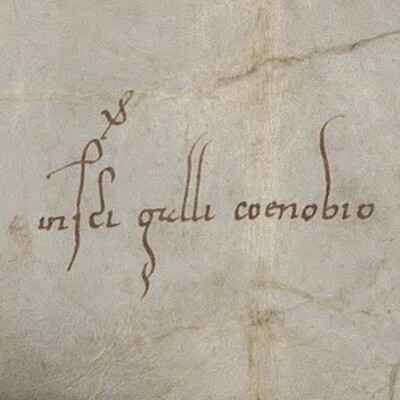 in sci galli coenobio